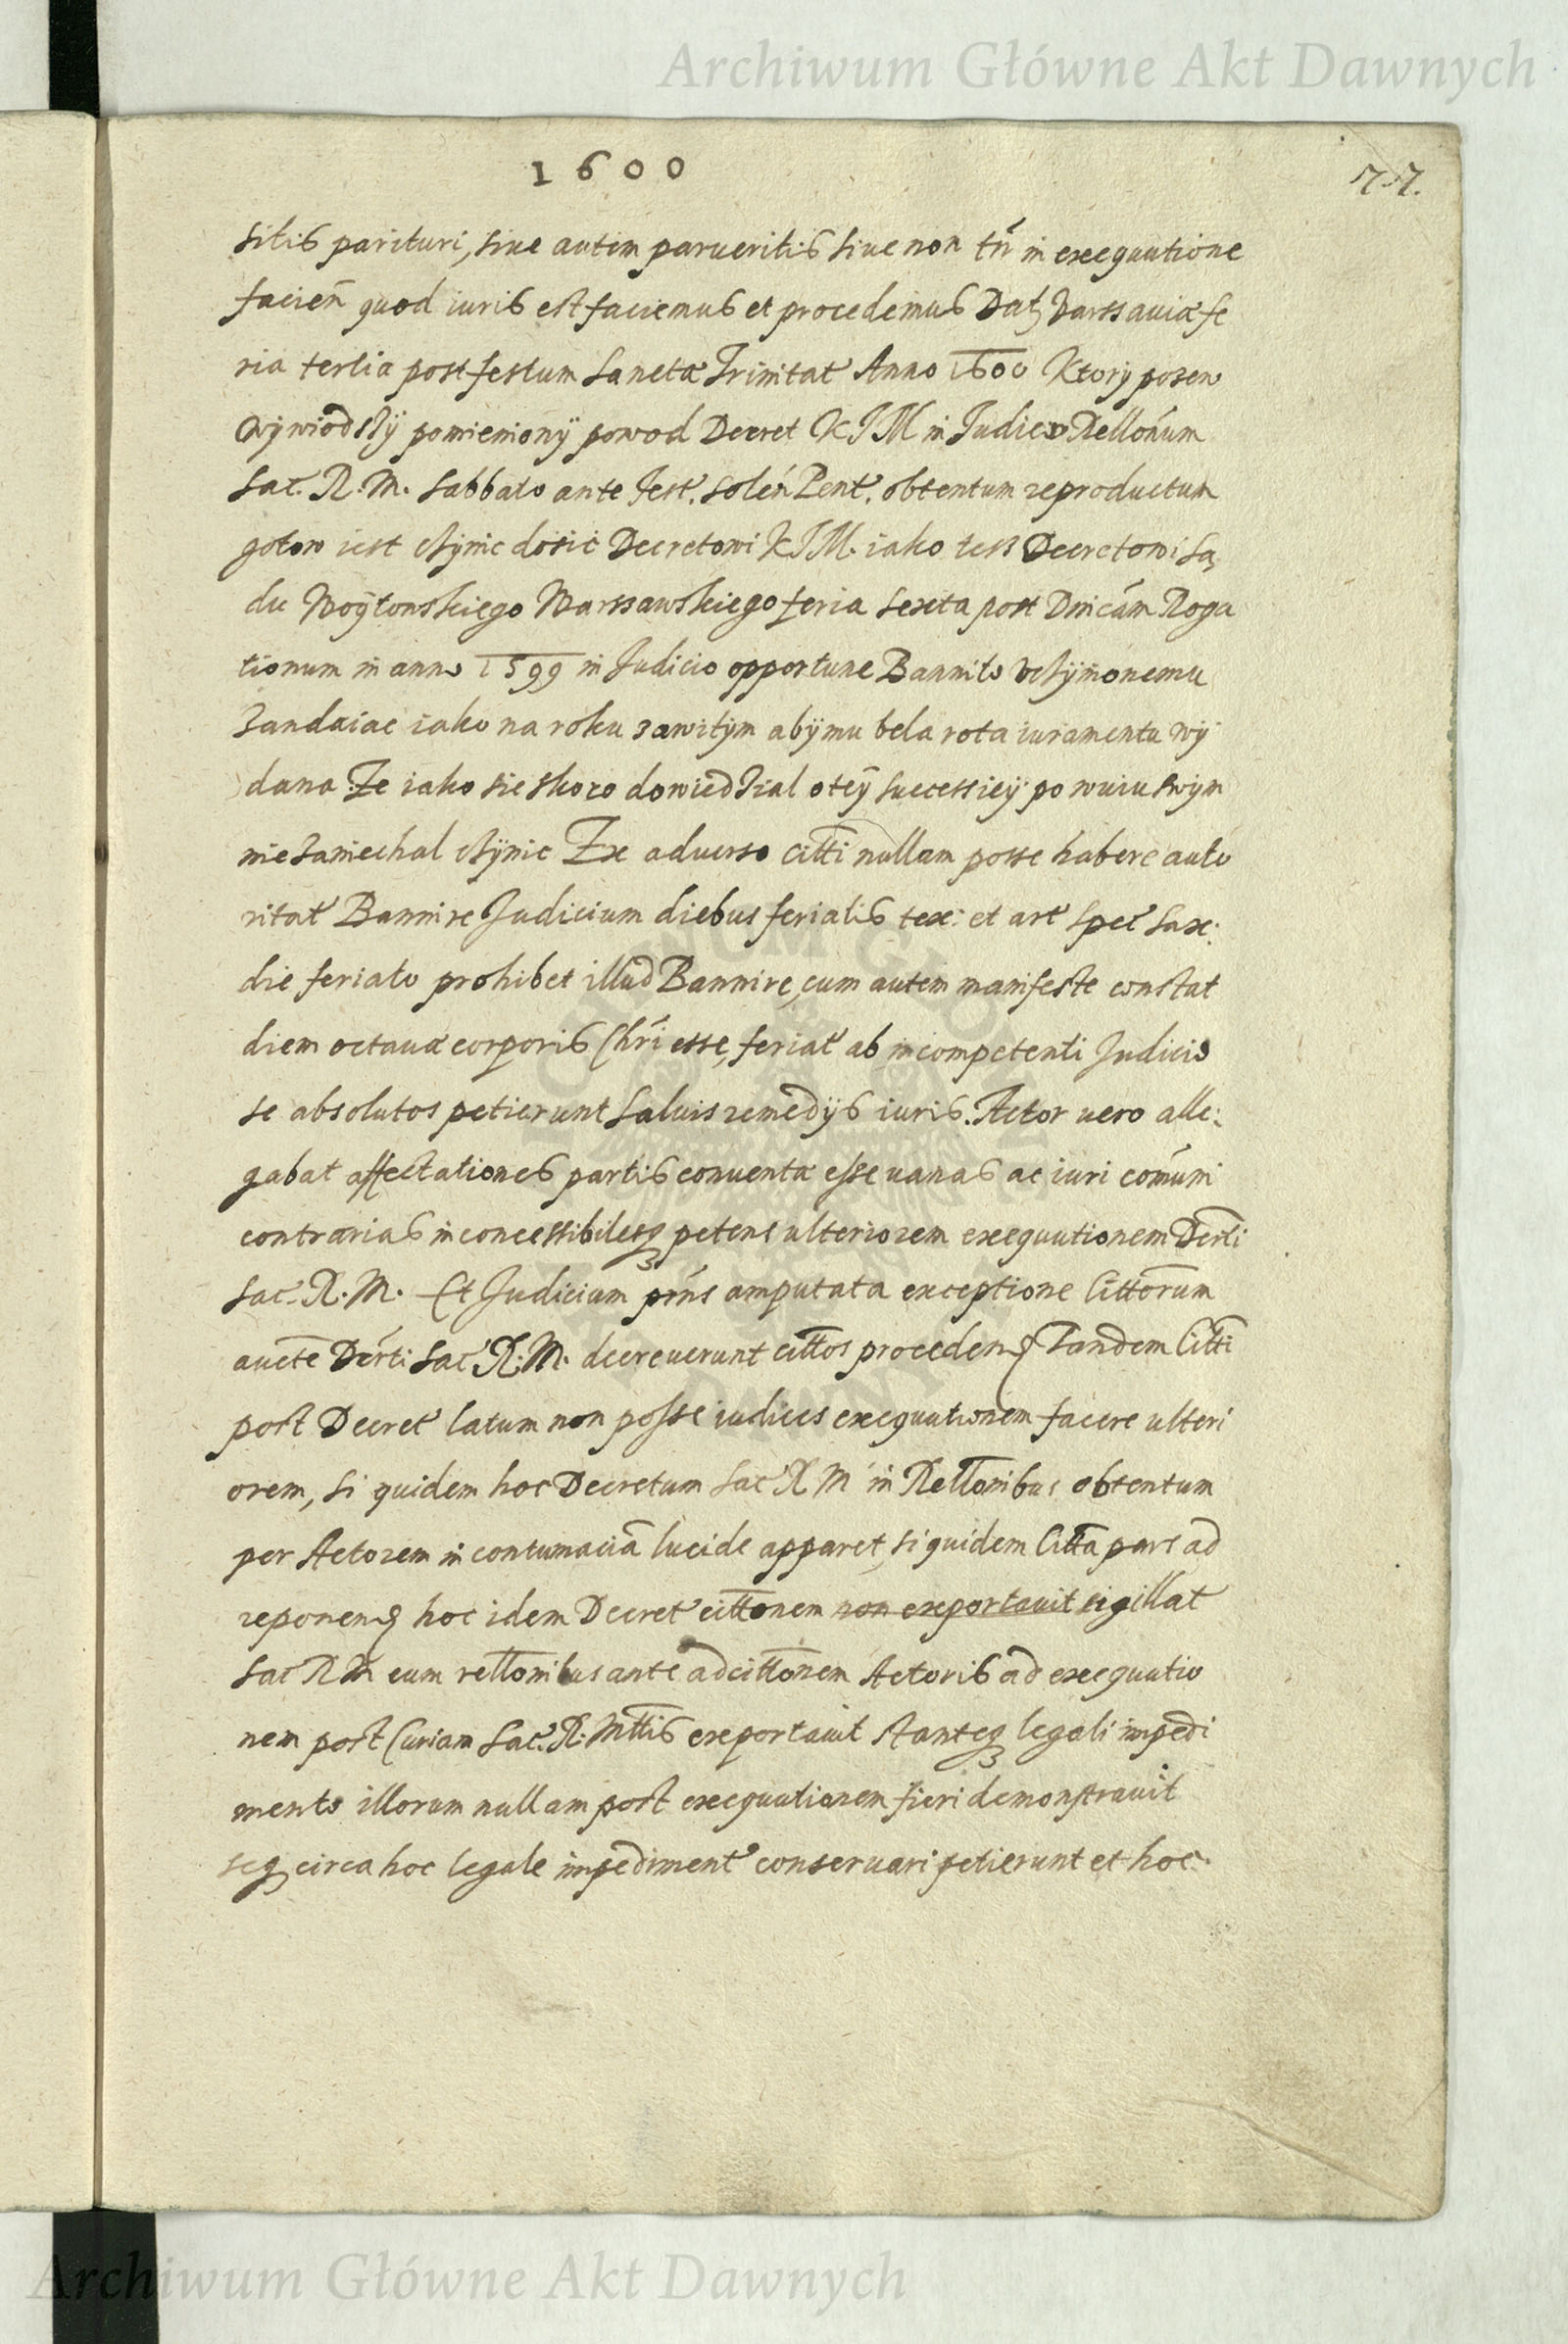 Archiwum Główne Akt Dawnych
1600
77.
sitis parituri, siue autem parueritis siue non tñ in exequutione
facieñ quod iuris est faciemus et procedemus Datz Varssauiæ fe
ria tertia post festum Sanctæ Trinitat Anno 1600 Ktory pozew
wÿwiodszÿ pomienionÿ powod Decret KJM in Judicio Rellonum
Sac. R. M. Sabbato ante Fest. solen Pent. obtentum reproductum
gotow iest czÿnic dosic Decretowi KJM. iako tesz Decretowi Sa,
du Woÿtowskiego Warssawskiego feria sexta post Dnicam Roga
tionum in anno 1599 in Judicio opportune Bannito vczÿnionemu
zandaiac iako na roku zawitÿm abÿ mu bela rota iuramentu wÿ
dana Ze iako sie skoro dowiedzial o teÿ successieÿ po wuiu swÿm
niezaniechal czÿnic Ex aduerso citti nullam posse habere auto
ritat Bannire Judicium diebus ferialis tex: et art spec sax:
die feriato prohibet illud Bannire, cum autem manifeste constat
diem octauæ corporis Chri esse, feriat ab incompetenti Judicio
se absolutos petierunt saluis remedijs iuris. Actor uero alle:
gabat affectationes partis conuentæ esse uanas ac iuri comuni
contrarias inconcessibilesq petens ulteriorem exequutionem Derti
Sac. R. M. Et Judicium prns amputata exceptione Cittorum
aucte Derti Sac R. M. decreuerunt cittos proceden Tandem Citti
post Decret latum non posse iudices exequutionem facere ulteri
orem, si quidem hoc Decretum Sac R M in Rellonibus obtentum
per Actorem in contumacia lucide apparet, si quidem Citta pars ad
reponen hoc idem Decret cittonem non exportauit sigillat
Sac R M cum rellonibus ante adcittonem Actoris ad exequutio
nem post Curiam Sac. R. Mttis exportauit stanteq legali impedi
mento illorum nullam post exequutionem fieri demonstrauit
seq circa hoc legale impediment conseruari petierunt et hoc
Archiwum Główne Akt Dawnych